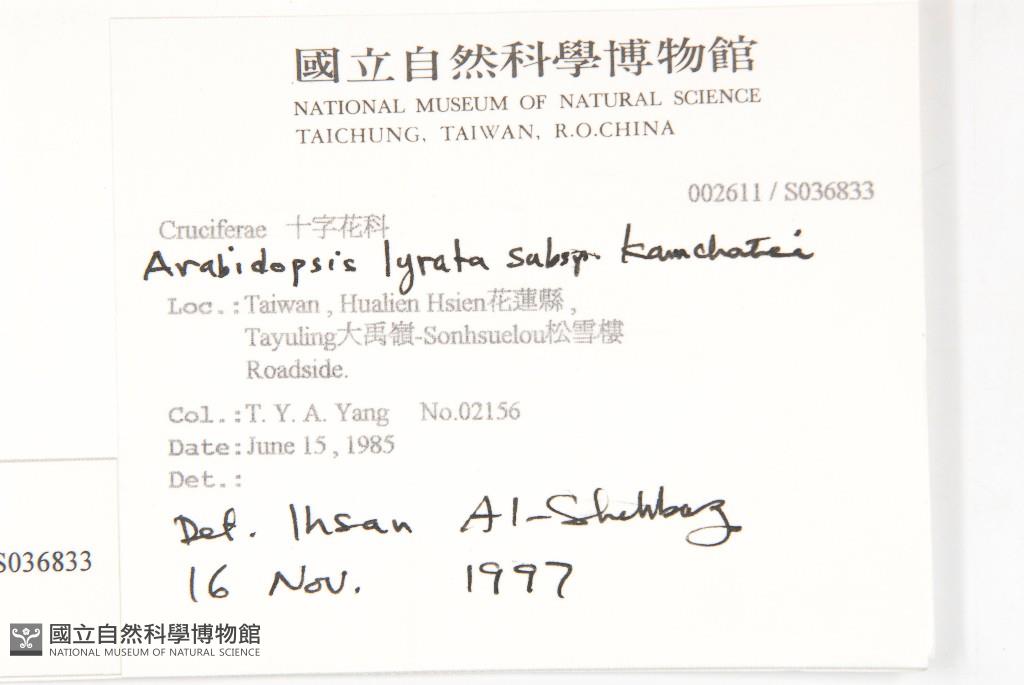 國立自然科學博物館
NATIONAL MUSEUM OF NATURAL SCIENCE
TAICHUNG, TAIWAN, R.O.CHINA
002611 / S036833
Cruciferae 十字花科
Arabidopsis lyrata subsp.
Loc.:Taiwan , Hualien Hsien花蓮縣 ,
Tayuling大禹嶺-Sonhsuelou松雪樓
Roadside.
Col.:T. Y. A. Yang No.02156
Date:June 15 , 1985
Det.:
Det. Ihsan Al-Shehbaz
16 Nov. 1997
S036833
國立自然科學博物館
NATIONAL MUSEUM OF NATURAL SCIENCE